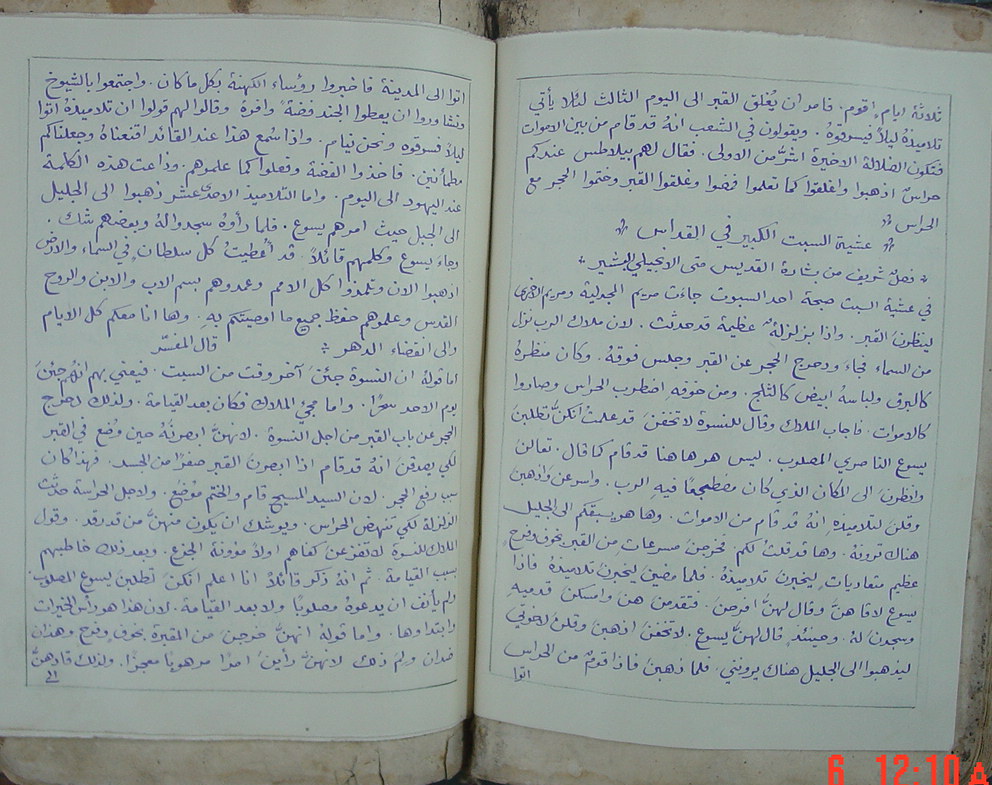 ثلاثة ايام اقوم. فامر ان يُغلق القبر الى اليوم الثالث لئلا يأتي
تلاميذهُ ليلاً فيسرقوهُ. ويقولون في الشعب انهُ قد قام من بين الاموات
فتكون الضلالة الاخيرة اشرّ من الاولى. فقال لهم بيلاطس عندكم
حراسٌ اذهبوا واغلقوا كما تعلموا فمضوا وغلقوا القبر وختموا الحجر مع
الحراس
عشية السبت الكبير في القداس
فصلٌ شريف من بشارة القديس متى الانجيلي البشير
في عشية السبت صبحة احد السبوت جاءت مريم المجدلية ومريم الاخرى
لينظرنَ القبر. واذا بزلزلةٍ عظيمة قد حدثت. لان ملاك الرب نزل
من السماء فجاءَ ودحرج الحجر عن القبر وجلس فوقهُ. وكان منظرهُ
كالبرق ولباسهُ ابيض كالثلج. ومن خوفهِ اضطرب الحراس وصاروا
كالاموات. فاجاب الملاك وقال للنسوة لا تخفنَ قد علمت انكنَّ تطلبنَ
يسوع الناصري المصلوب. ليس هو هاهنا قد قام كما قال. تعالن
وانظرنَ الى المكان الذي كان مضطجعًا فيهِ الرب. واسرعن واذهبن
وقلن لتلاميذهِ انهُ قد قام من الاموات. وها هو يسبقكم الى الجليل
هناك ترونهُ. وها قد قلتُ لكم فخرجن مسرعات من القبر بخوف وفرح
عظيم متعاديات ليخبرن تلاميذهُ. فلما مضين ليخبرن تلاميذهُ فاذا
يسوع لاقاهنَّ وقال لهنَّ افرحن. فتقدمن هن وامسكن قدميه
وسجدن لهُ. وحينئذٍ قال لهنَّ يسوع. لا تخفن اذهبن وقلن لاخوتي
ليذهبوا الى الجليل هناك يرونني. فلما ذهبن فاذا قومٌ من الحراس
اتوا
اتوا الى المدينة فاخبروا رؤساء الكهنة بكل ما كان. واجتمعوا بالشيوخ
وتشاوروا ان يعطوا الجند فضةً وافرة وقالوا لهم قولوا ان تلاميذهُ اتوا
ليلاً فسرقوهُ ونحن نيام. واذا سُمع هذا عند القائد اقنعناهُ وجعلناكم
مطمأنين. فاخذوا الفضة وفعلوا كما علموهم. وذاعت هذه الكلمة
عند اليهود الى اليوم. واما التلاميذ الاحدى عشر ذهبوا الى الجليل
الى الجبل حيث امرهم يسوع. فلما رأوهُ سجدوا لهُ وبعضهم شك.
وجاءَ يسوع وكلمهم قائلاً. قد أُعطيتُ كل سلطان في السماء والارض
اذهبوا الان وتلمذوا كل الامم وعمدوهم بسم الاب والابن والروح
القدس وعلموهم حفظ جميع ما اوصيتكم بهِ. وها انا معكم كل الايام
والى انقضاء الدهر قال المفسّر
اما قولهُ ان النسوة جئنَ آخر وقت من السبت. فيعني بهم انهُم جئنَ
يوم الاحد سحرًا. واما مجيّ الملاك فكان بعد القيامة. ولذلك دحرج
الحجر عن باب القبر من اجل النسوة. لانهنَّ ابصرنَهُ حين وُضع في القبر
لكي يصدقن انهُ قد قام اذا ابصرنَ القبر صفرًا من الجسد. فهذا كان
سبب رفع الحجر. لان السيد المسيح قام والختم مُوضَع. ولاجل الحراسة حدثت
الزلزلة لكي تنهض الحراس. ويوشك ان يكون منهنَّ من قد رقد. وقول
الملاك للنسوة لا تفزعن كفاهم اولاً مؤونة الجزع. وبعد ذلك خاطبهم
بسبب القيامة. ثم انهُ ذكر قائلاً انا اعلم انكنَّ تطلبنَ يسوع المصلوب
ولم يأنف ان يدعوهُ مصلوبًا ولا بعد القيامة. لان هذا هو رأس الخيرات
وابتداوها. واما قولهُ انهنَّ خرجن من المقبرة بخوف وفرح وهذان
ضدان ولمَ ذلك لانهنَّ رأينَ امرًا مرهوبًا معجزًا. ولذلك قادهنَّ
الى
6 12:10 A